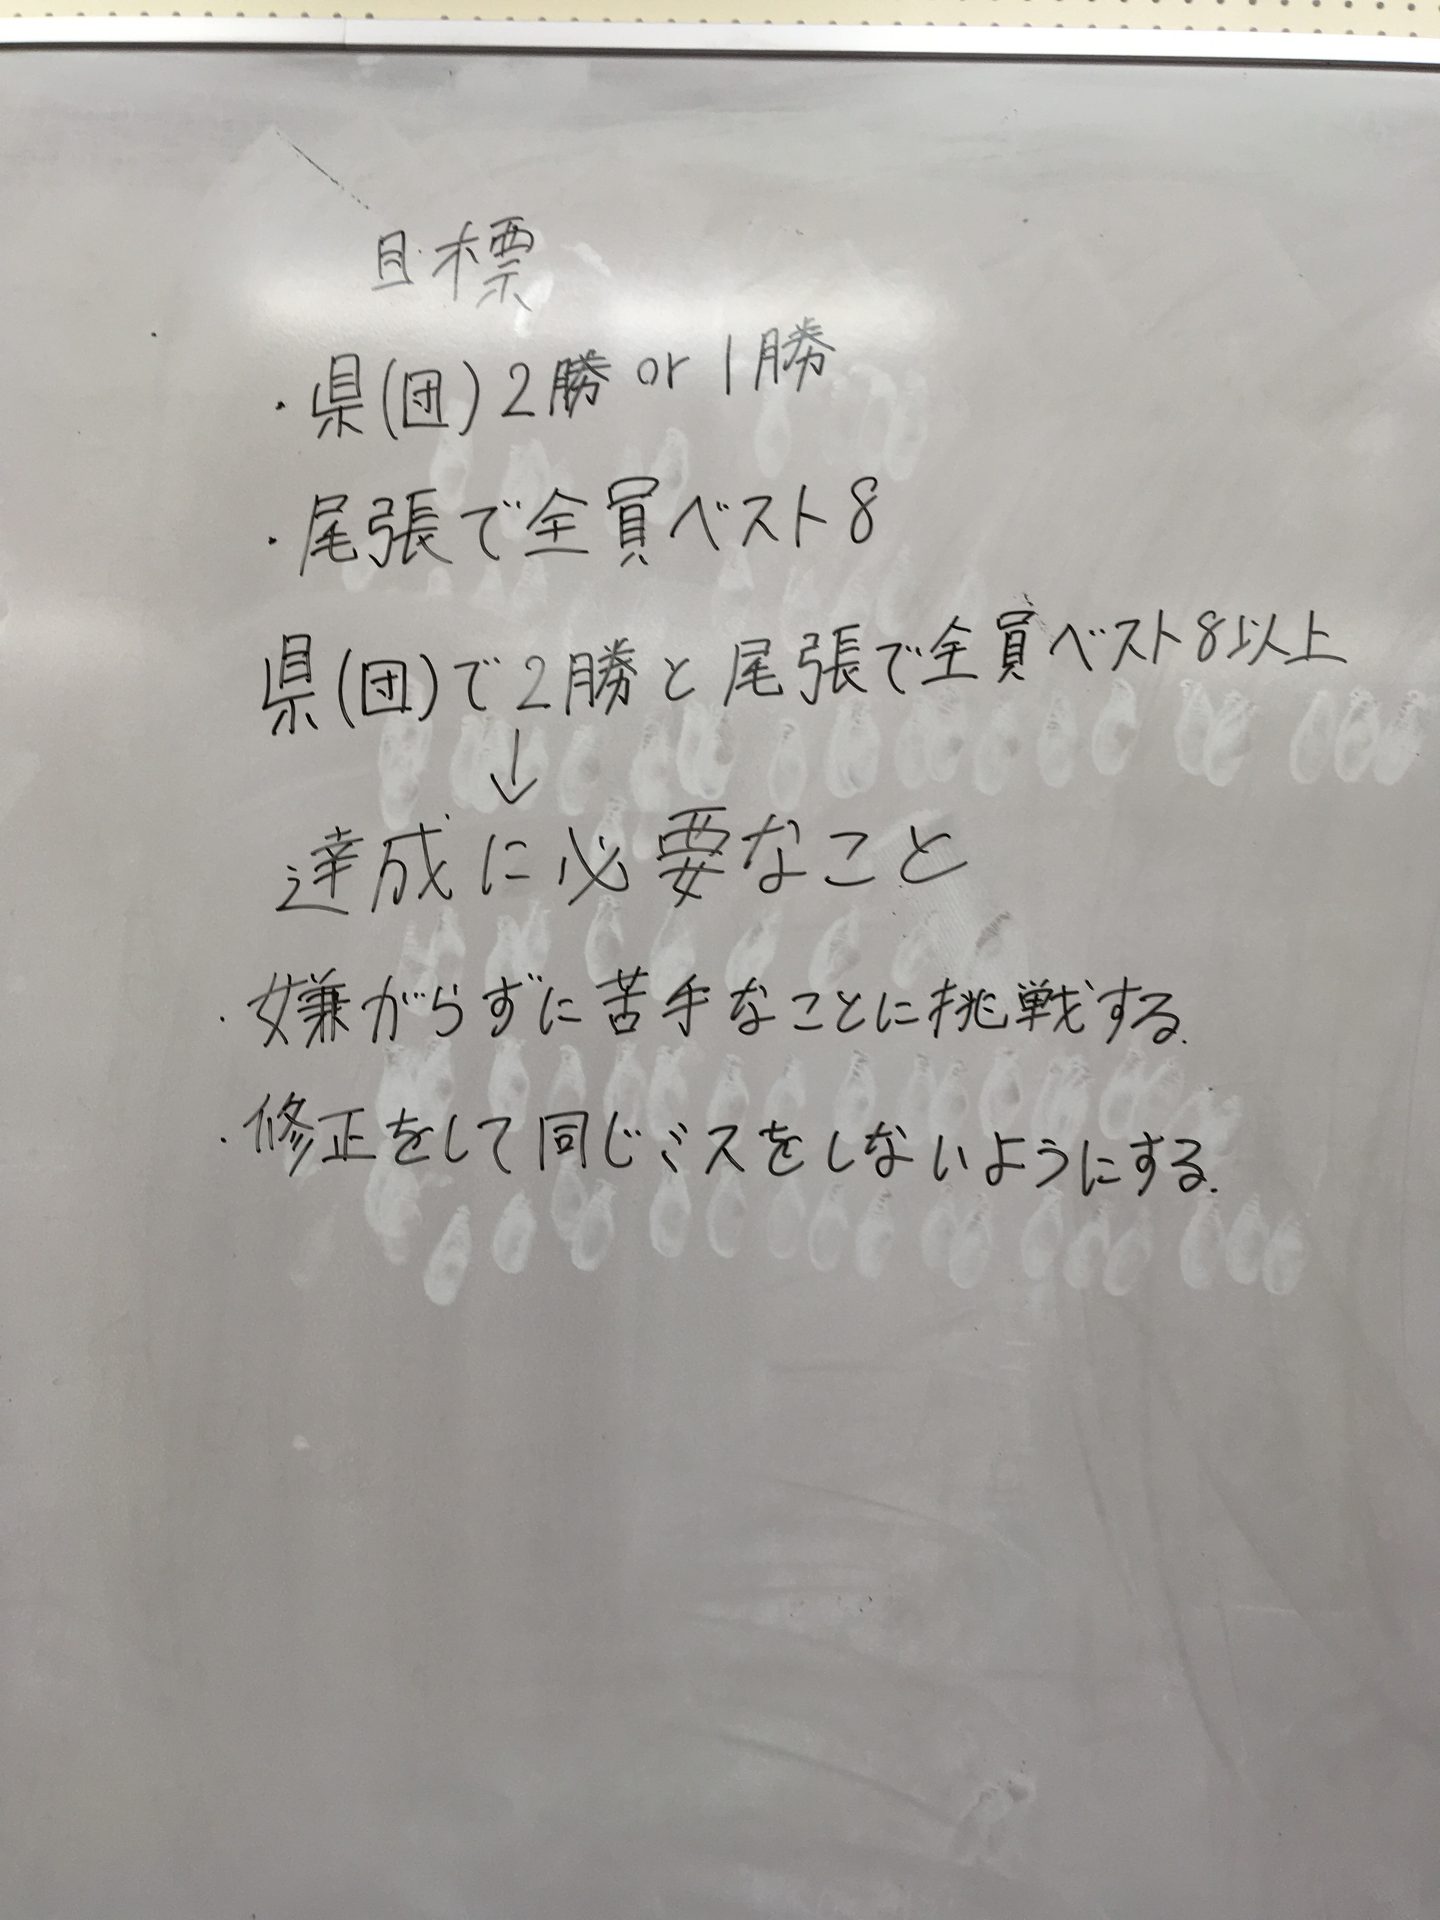 目標
・県(団)2勝 or 1勝
・尾張で全員ベスト8
県(団)で2勝と尾張で全員ベスト8以上
↓
達成に必要なこと
・嫌がらずに苦手なことに挑戦する.
・修正をして同じミスをしないようにする.